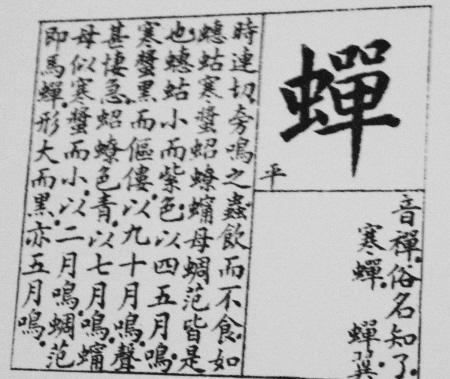 蟬
平
音禪俗名知了
寒蟬 蟬翼
時連切旁鳴之蟲飲而不食如
蟪蛄寒螿蛁蟟蠽母蜩范皆是
也蟪蛄小而紫色以四五月鳴
寒螿黑而傴僂以九十月鳴聲
甚悽急蛁蟟色青以七月鳴
母似寒螿而小以二月鳴蜩范
即馬蟬形大而黑亦五月鳴